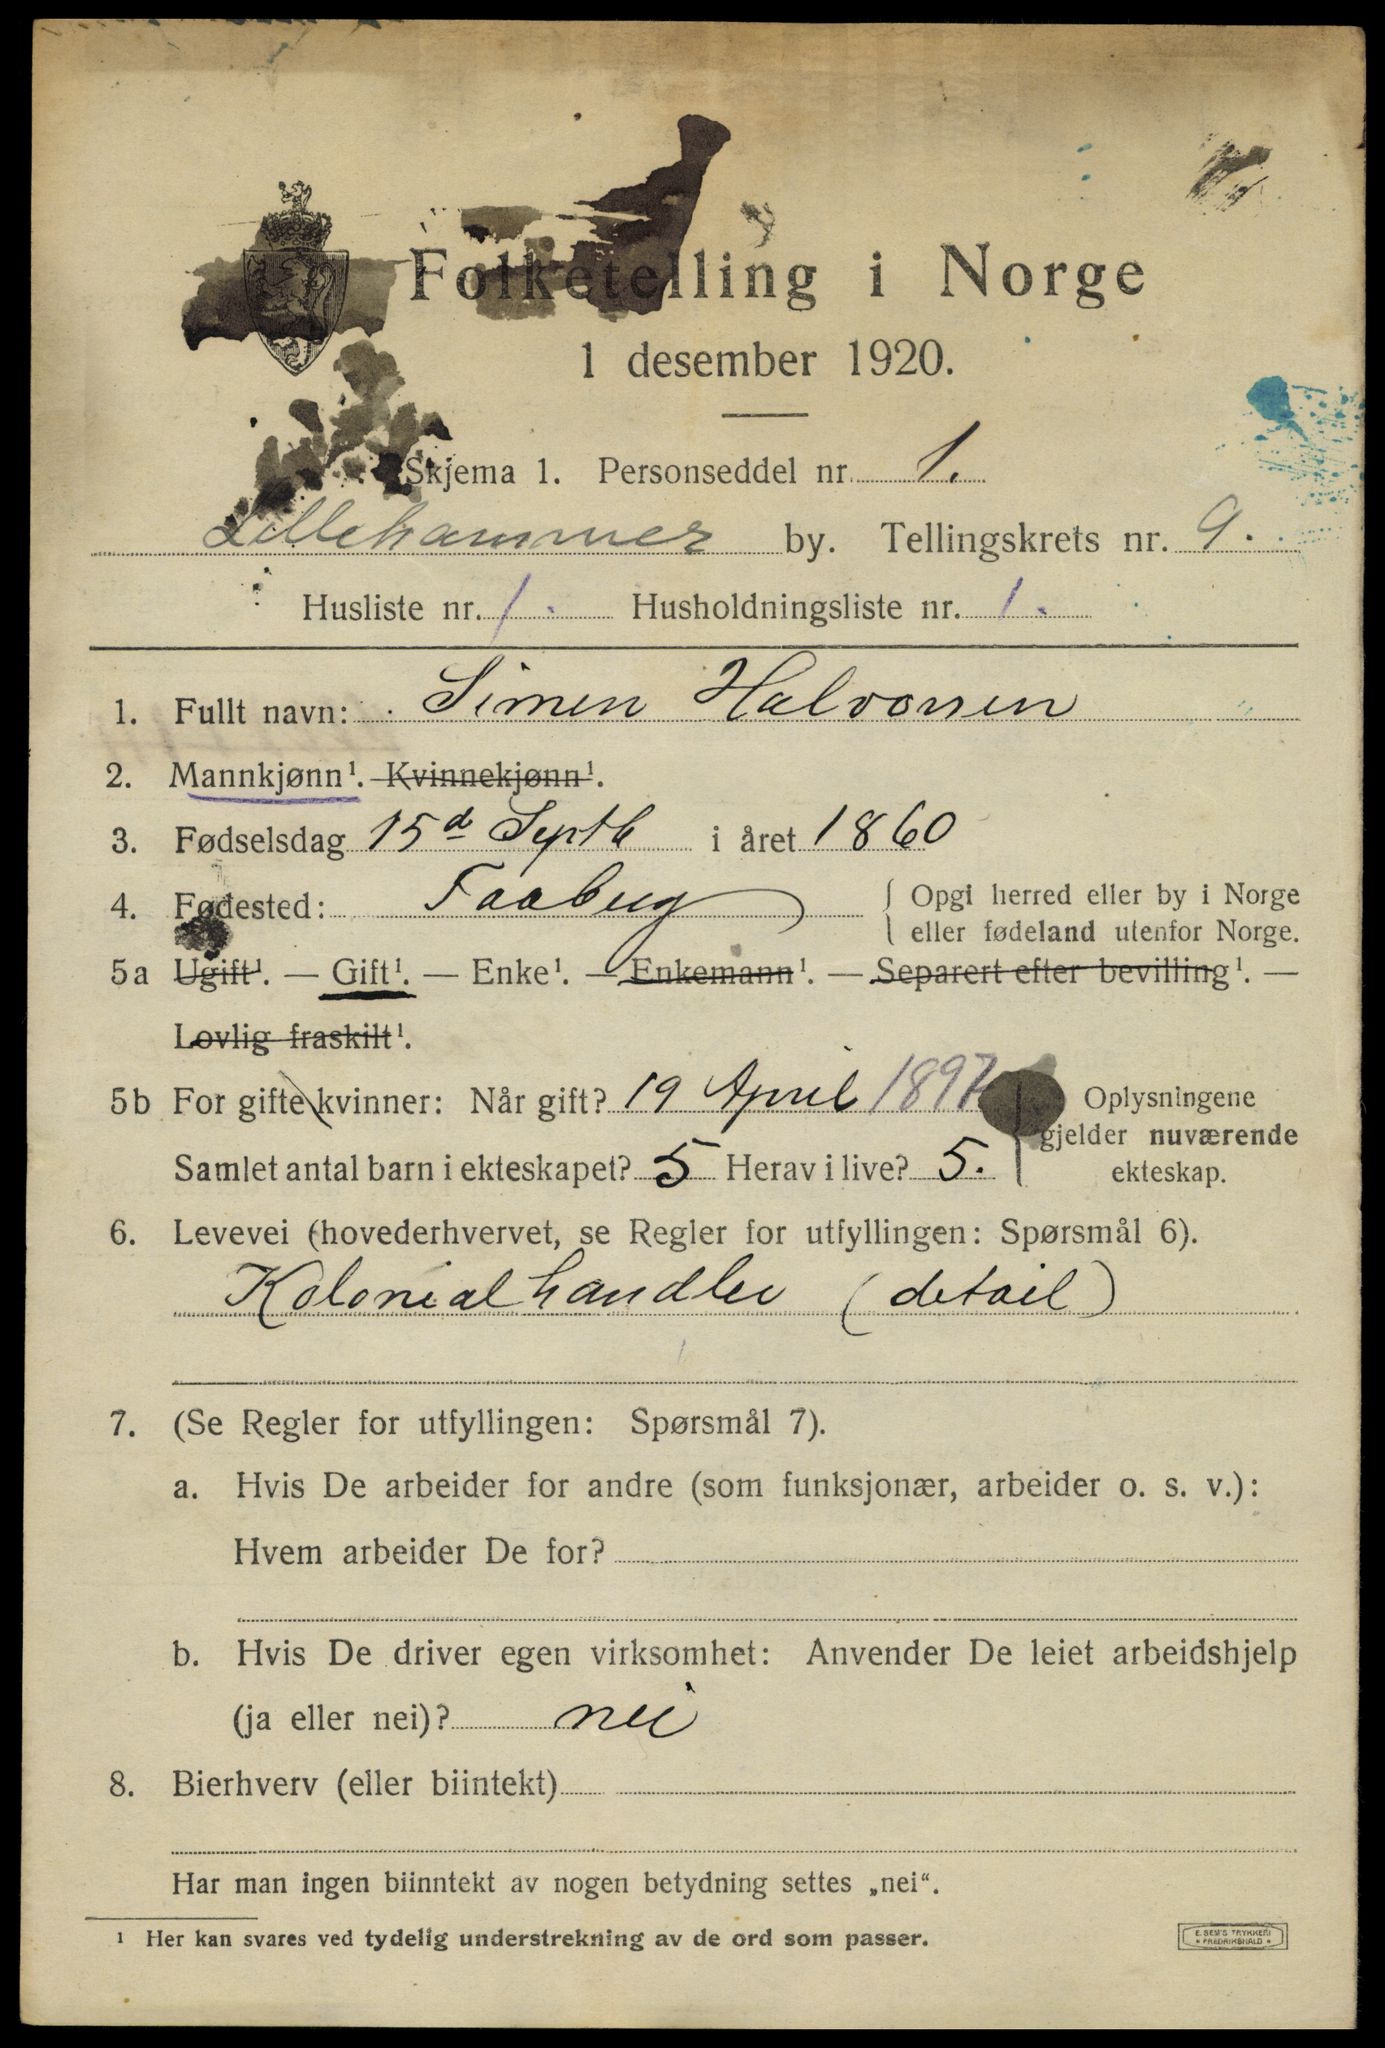 Folketelling i Norge
1 desember 1920.
Skjema 1. Personseddel nr. 1.
Lillehammer by. Tellingskrets nr. 9.
Husliste nr. 1. Husholdningsliste nr. 1.
1. Fullt navn: Simen Halvorsen
2. Mannkjønn¹. Kvinnekjønn¹.
3. Fødselsdag 15d Septb i året 1860
4. Fødested: Faaberg { Opgi herred eller by i Norge
eller fødeland utenfor Norge.
5a Ugift¹. — Gift¹. — Enke¹. — Enkemann¹. — Separert efter bevilling¹. —
Lovlig fraskilt¹.
5b For gifte kvinner: Når gift? 19 April 1897 Oplysningene
gjelder nuværende
Samlet antal barn i ekteskapet? 5 Herav i live? 5. ekteskap.
6. Levevei (hovederhvervet, se Regler for utfyllingen: Spørsmål 6).
Kolonialhandler (detail)
7. (Se Regler for utfyllingen: Spørsmål 7).
a. Hvis De arbeider for andre (som funksjonær, arbeider o. s. v.):
Hvem arbeider De for?
b. Hvis De driver egen virksomhet: Anvender De leiet arbeidshjelp
(ja eller nei)? nei
8. Bierhverv (eller biintekt)
Har man ingen biinntekt av nogen betydning settes „nei“.
¹ Her kan svares ved tydelig understrekning av de ord som passer.
E. SEM'S TRYKKERI
* FREDRIKSHALD *